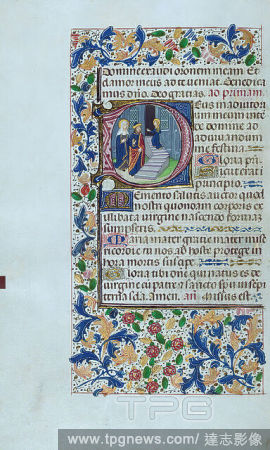 Domine exaudi orationem meam. Et
clamor meus ad te veniat. Benedica
mus dño. Deo gratias. ad primam.
Deus in adiutori
um meum inte
de domine ad
adiuvandum
me festina.
Gloria pri
Sicut erat i
principio.
Memento salutis auctor quod
nostri quondam corporis ex
illibata virgine nascendo formaz
sumpseris.
Maria mater gratie mater mise
ricordie tu nos ab hoste protege in
hora mortis suscipe.
Gloria tibi dñe qui natus es de
virgine cum patre et sancto spū in sempi
terna scła. Amen. añ. Missus est.
TPG
www.tpgnews.com/ 達志影像